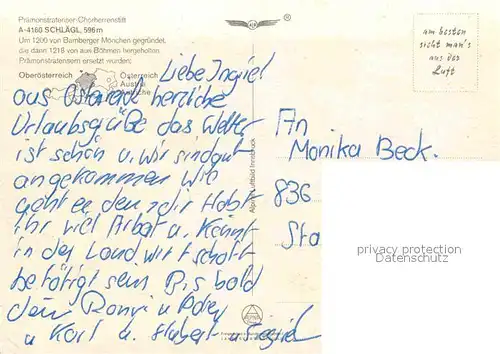 Prämonstratenser-Chorherrenstift
A-4160 SCHLÄGL, 596m
Um 1200 von Bamberger Mönchen gegründet,
die dann 1218 von aus Böhmen hergeholten
Prämonstratensern ersetzt wurden.
Oberösterreich
Österreich
Austria
Autriche
®
am besten
sieht man's
aus der
Luft
Liebe
aus herzliche
Urlaubsgrüße das Wetter
ist schön u. wir sind gut
angekommen wie
geht es den dir Habt
ihr viel Arbat u. Kennt
in der Land wirtschaft
betötigt sein Bis bald
dein u
u Karl u. Hubert u
Alpine Luftbild Innsbruck
An
Monika Beck.
836
Sta
privacy protection
Datenschutz